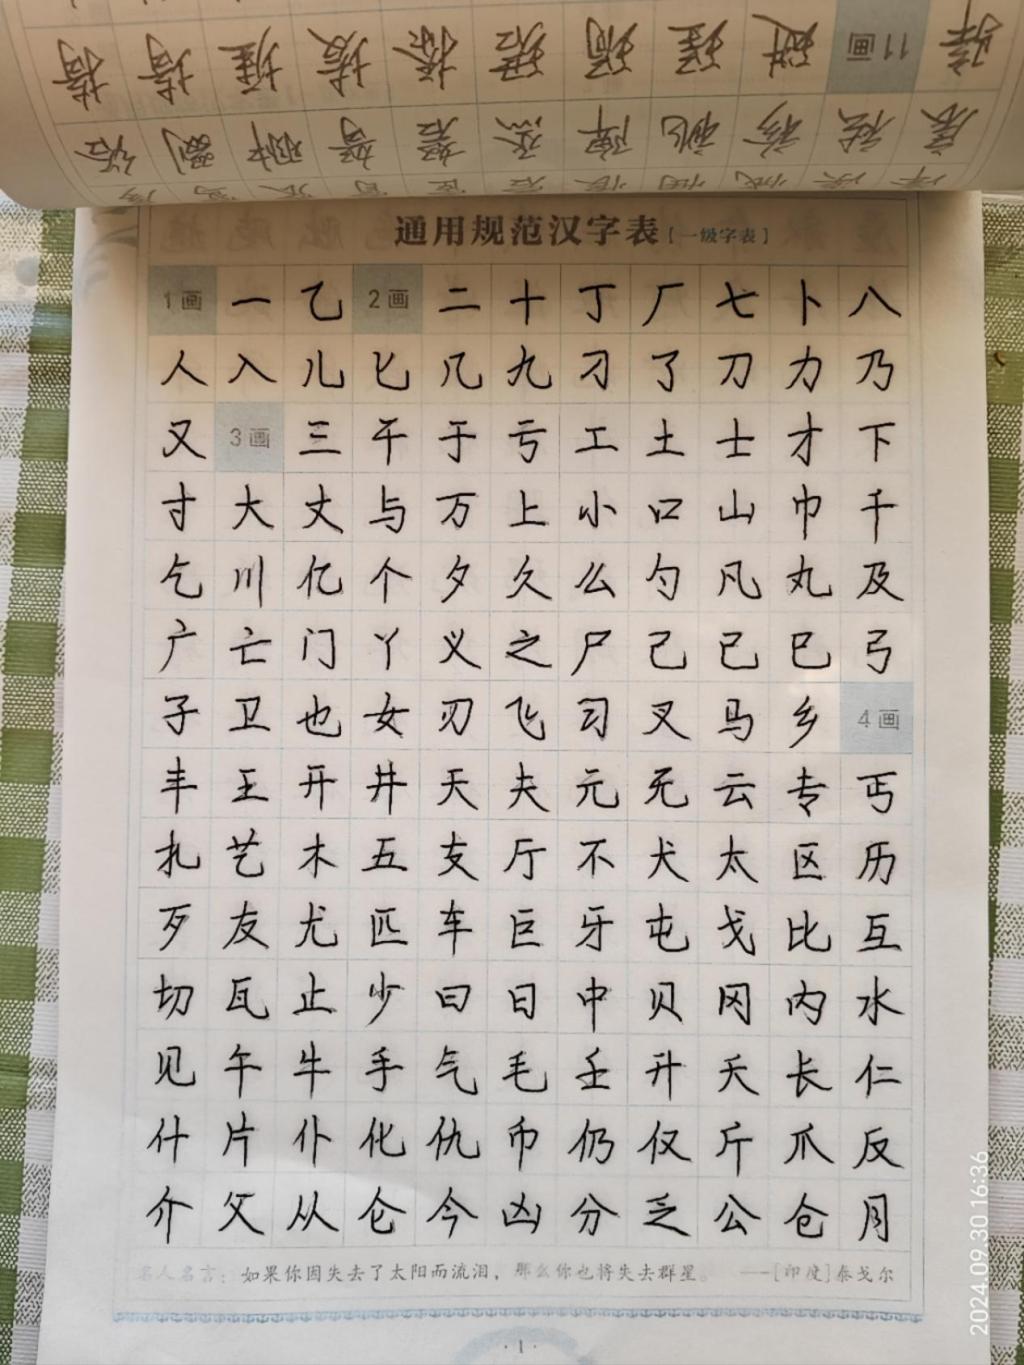 通用规范汉字表[一级字表]
1画 一 乙 2画 二 十 丁 厂 七 卜 八
人 入 儿 匕 几 九 刁 了 刀 力 乃
又 3画 三 干 于 亏 工 土 士 才 下
寸 大 丈 与 万 上 小 口 山 巾 千
乞 川 亿 个 夕 久 么 勺 凡 丸 及
广 亡 门 丫 义 之 尸 己 已 巳 弓
子 卫 也 女 刃 飞 习 叉 马 乡 4画
丰 王 开 井 天 夫 元 无 云 专 丐
扎 艺 木 五 支 厅 不 犬 太 区 历
歹 友 尤 匹 车 巨 牙 屯 戈 比 互
切 瓦 止 少 曰 日 中 贝 冈 内 水
见 午 牛 手 气 毛 壬 升 夭 长 仁
什 片 仆 化 仇 币 仍 仅 斤 爪 反
介 父 从 仑 今 凶 分 乏 公 仓 月
名人名言：如果你因失去了太阳而流泪，那么你也将失去群星。 ——[印度]泰戈尔
·1·
2024.09.30 16:36
11画